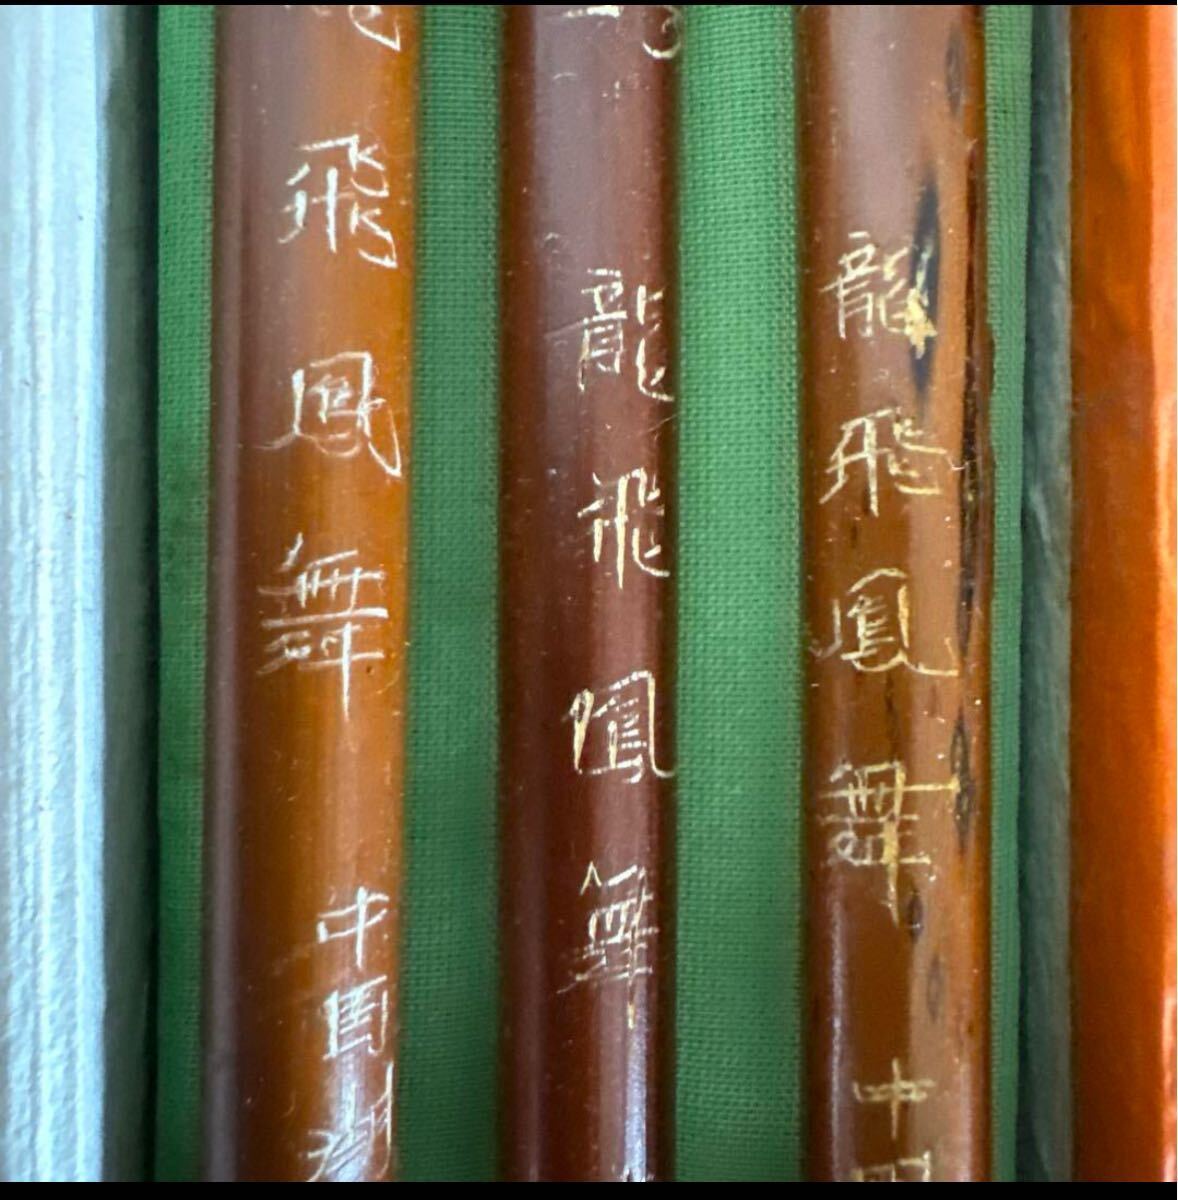 飛鳳舞
中国
龍飛鳳舞
龍飛鳳舞
中